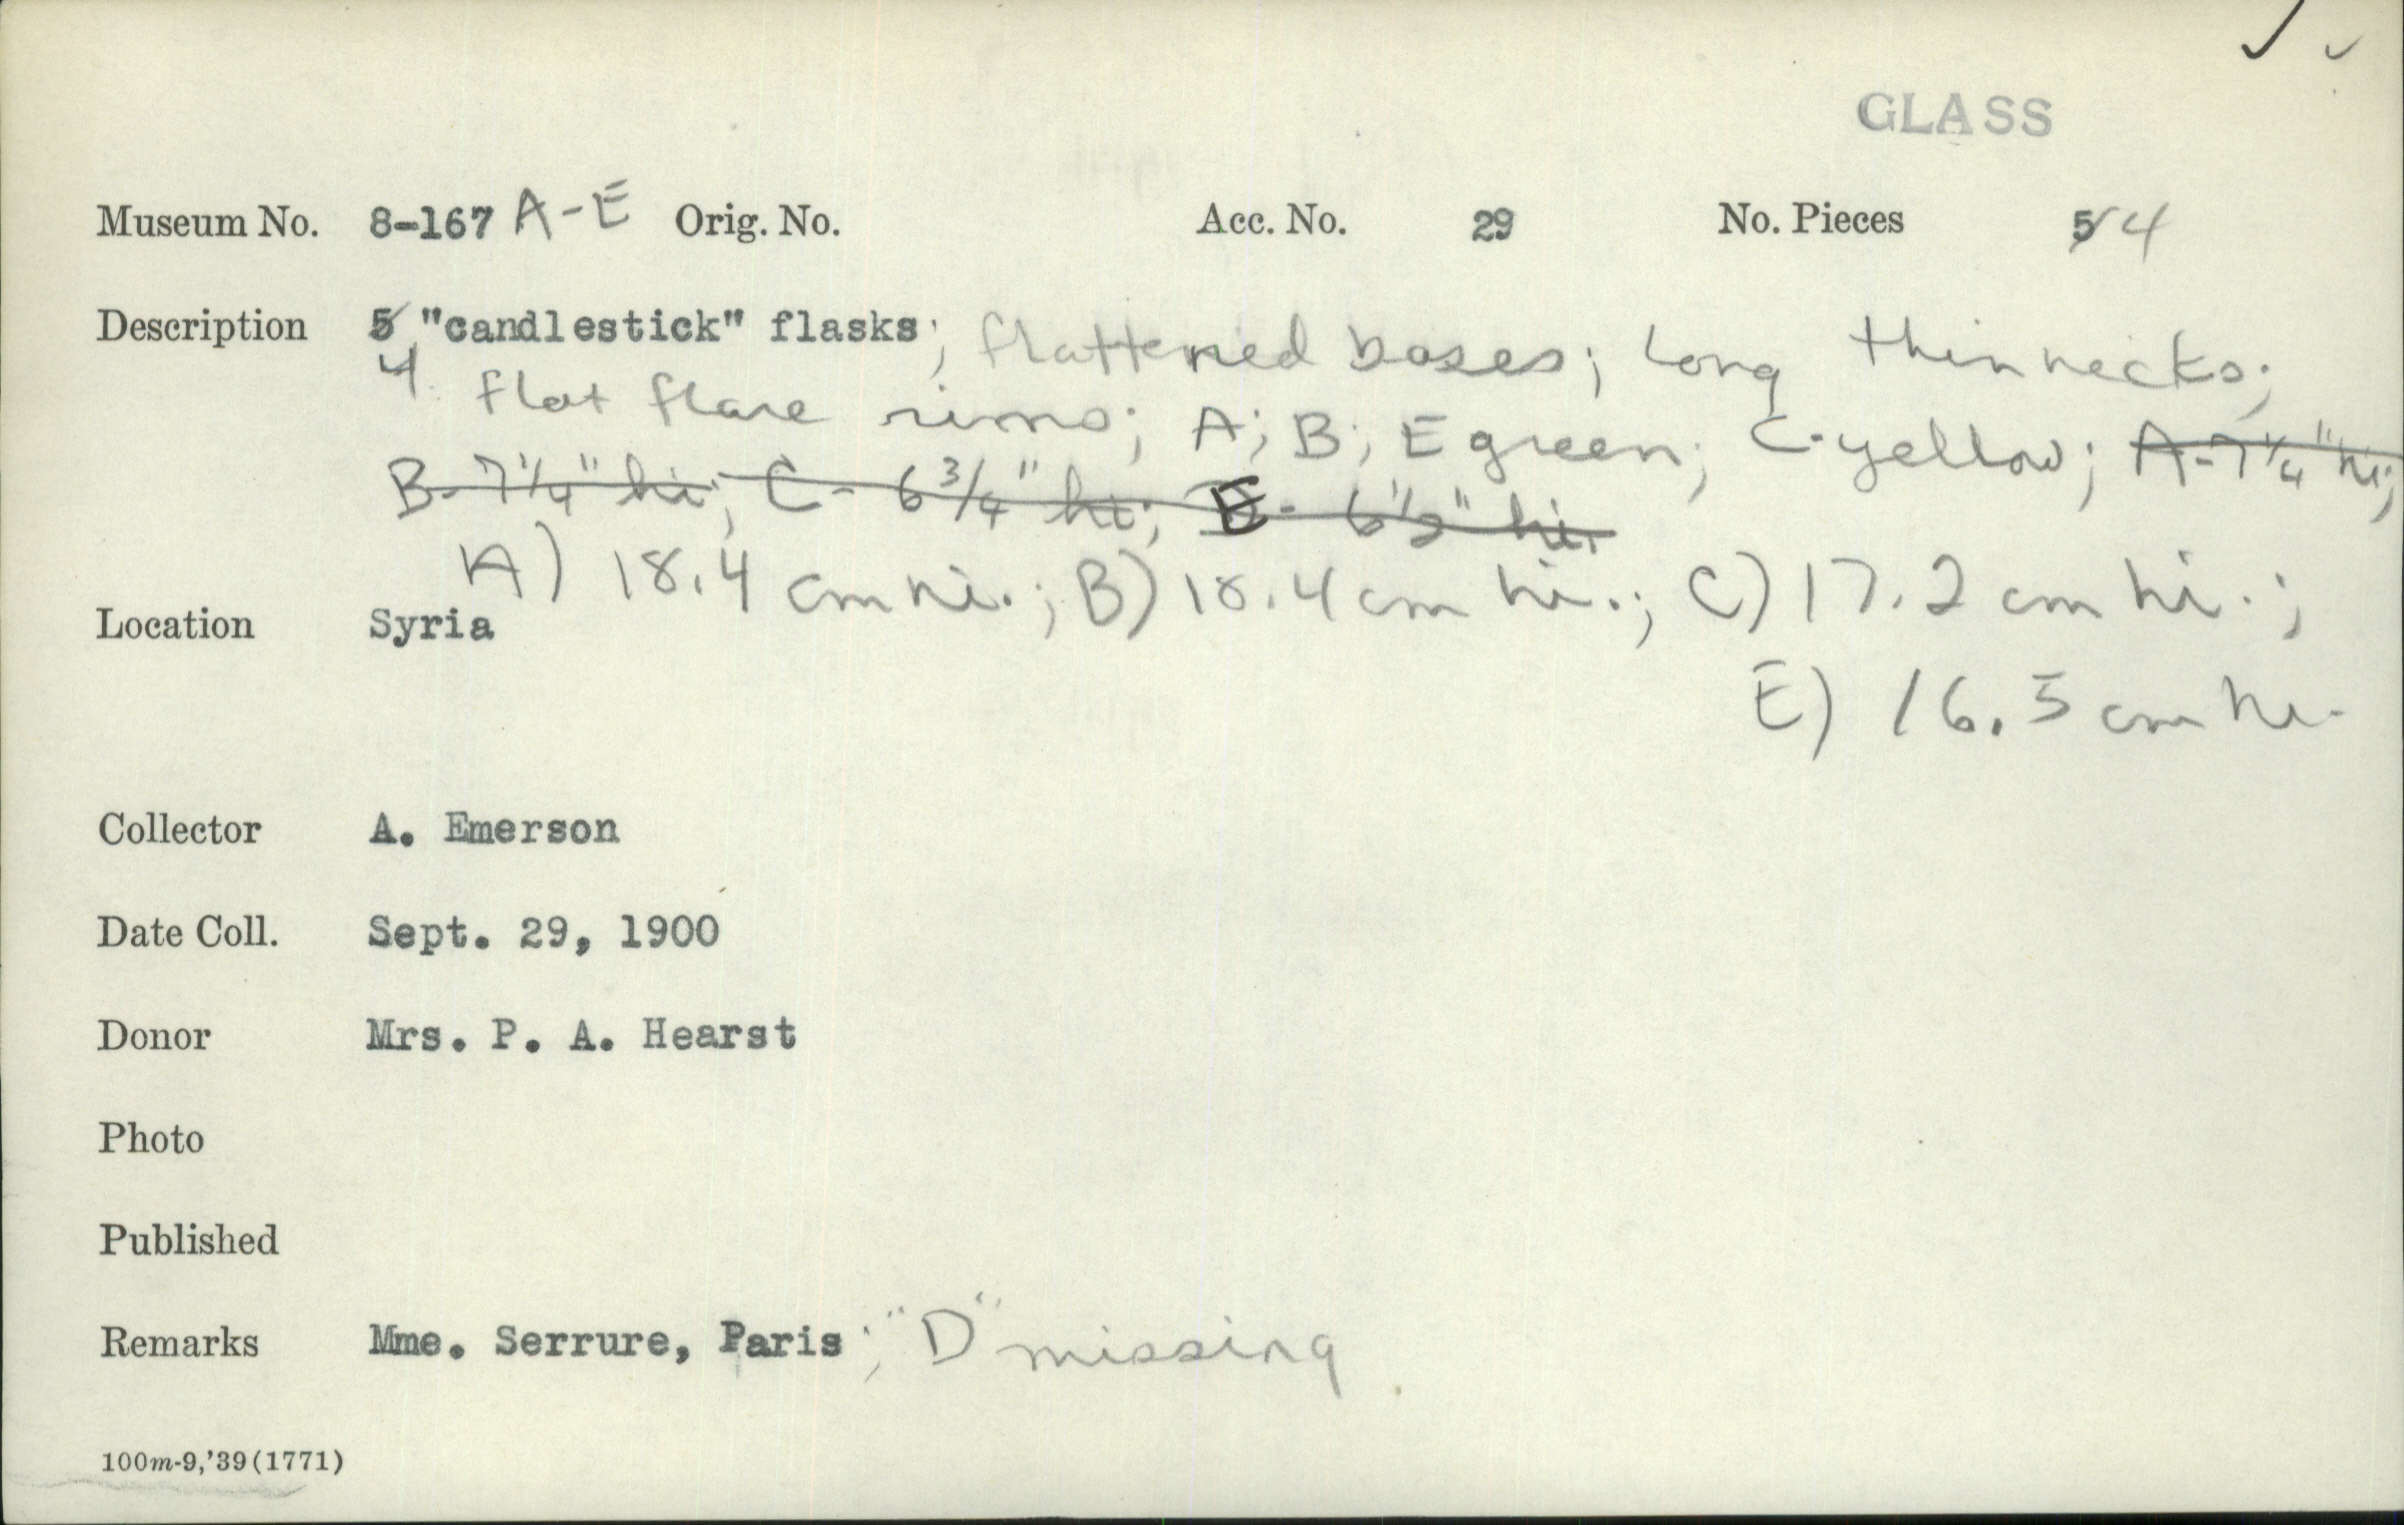 GLASS
Museum No. 8-167 A-E Orig. No. Acc. No. 29 No. Pieces 5 4
Description 5 4 "candlestick" flasks; flattened bases; long thin necks;
flat flare rims; A; B; E green; C-yellow; A-7¼" hi;
B-7¼" hi; C-6¾" hi; E-6½" hi.
A) 18.4 cm hi.; B) 18.4 cm hi.; C) 17.2 cm hi.;
Location Syria
E) 16.5 cm hi.
Collector A. Emerson
Date Coll. Sept. 29, 1900
Donor Mrs. P. A. Hearst
Photo
Published
Remarks Mme. Serrure, Paris; "D" missing
100m-9,'39(1771)